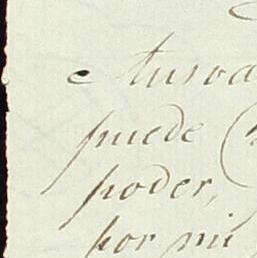 puede (
poder,
por mi